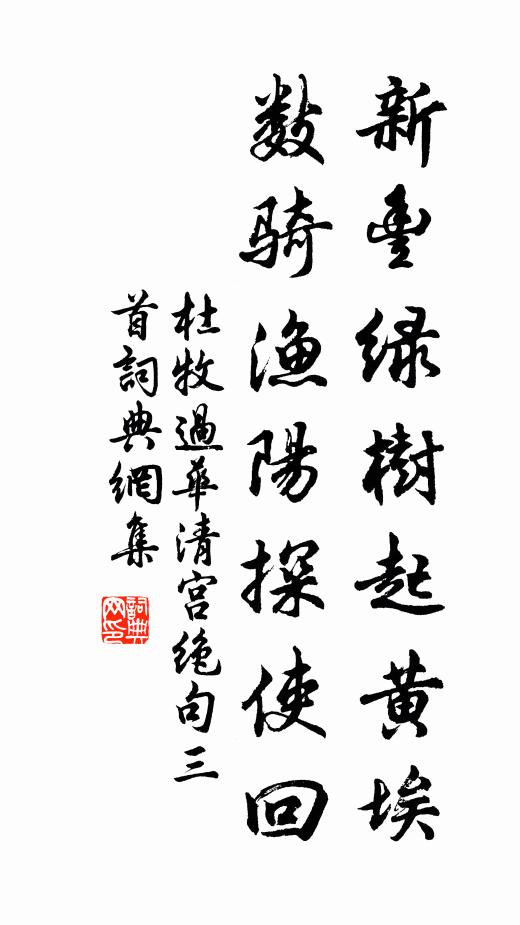 新豐緑樹起黄埃
数騎漁陽探使回
杜牧過華清宫絶句三
首詞典網集
詞典
网印